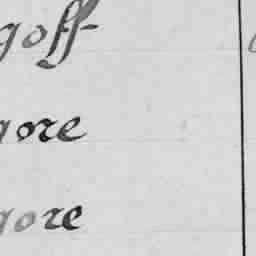 goff
gore
gore